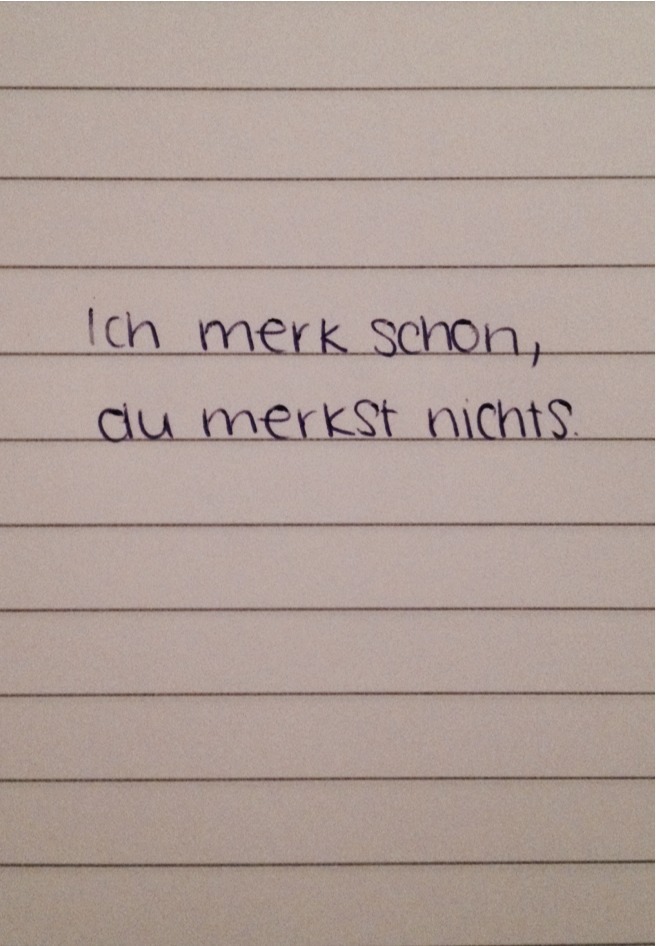 Ich merk schon,
du merkst nichts.